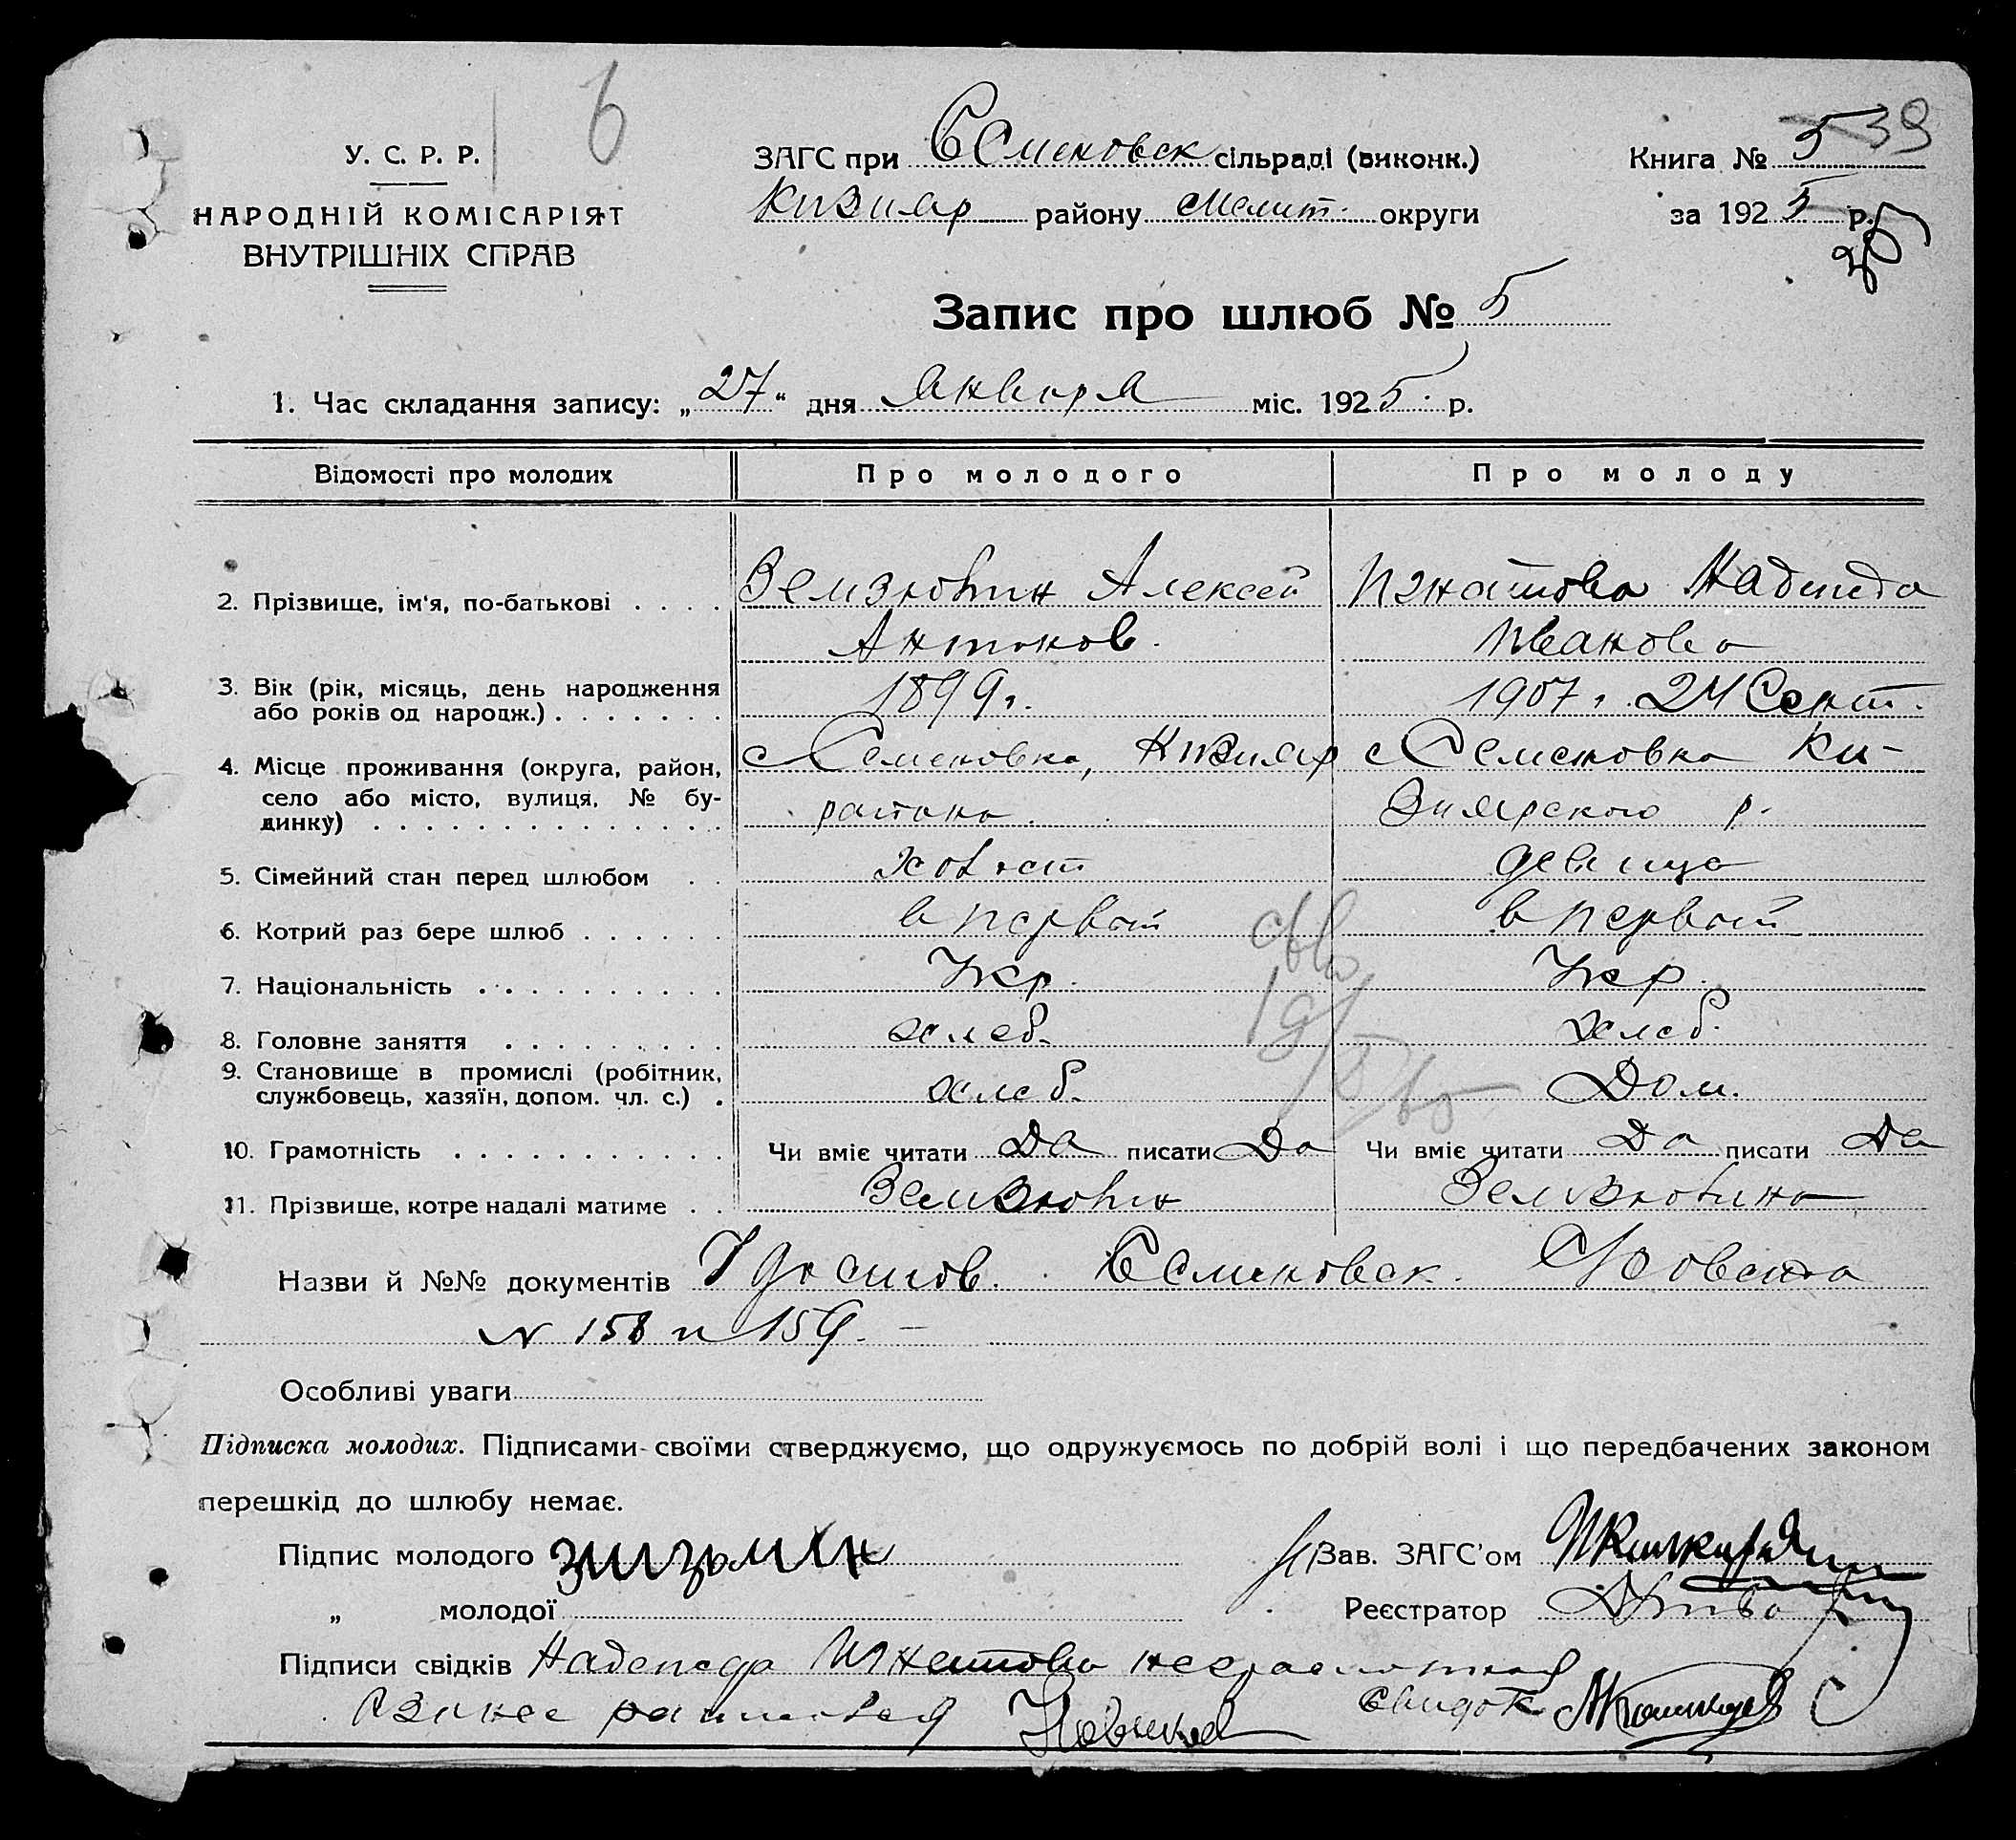 6
У. С. Р. Р.
НАРОДНІЙ КОМІСАРІЯТ
ВНУТРІШНІХ СПРАВ
ЗАГС при Семеновск сільраді (виконк.)
Кизияр району Мелит. округи
Книга № 5 39
за 1925 р.
Запис про шлюб № 5
1. Час складання запису: „27“ дня Января міс. 1925 р.
Відомості про молодих Про молодого Про молоду
2. Прізвище, ім'я, по-батькові . . . . Алексей Игнатова Надежда
Антонов. Иванова
3. Вік (рік, місяць, день народження
або років од народж.) . . . . . . . 1899 г. 1907 г. 24 Сент.
4. Місце проживання (округа, район, с Семеновка, Кизияр с Семеновка Ки-
село або місто, вулиця, № бу- района. зиярского р.
динку) . . . . . . . . . . . . . .
5. Сімейний стан перед шлюбом . . холост девица
6. Котрий раз бере шлюб . . . . . . в первый в первый
7. Національність . . . . . . . . . . Укр. Укр.
8. Головне заняття . . . . . . . . . хлеб. хлеб.
9. Становище в промислі (робітник,
службовець, хазяїн, допом. чл. с.) . хлеб. Дом.
10. Грамотність . . . . . . . . . . . Чи вміє читати Да писати Да Чи вміє читати Да писати Да
11. Прізвище, котре надалі матиме . .
Назви й №№ документів Семеновск.
N 158 и 159. –
Особливі уваги
Підписка молодих. Підписами своїми стверджуємо, що одружуємось по добрій волі і що передбачених законом
перешкід до шлюбу немає.
Підпис молодого Зав. ЗАГС'ом
„ молодої Реєстратор
Підписи свідків Надежда Игнатова
свидок